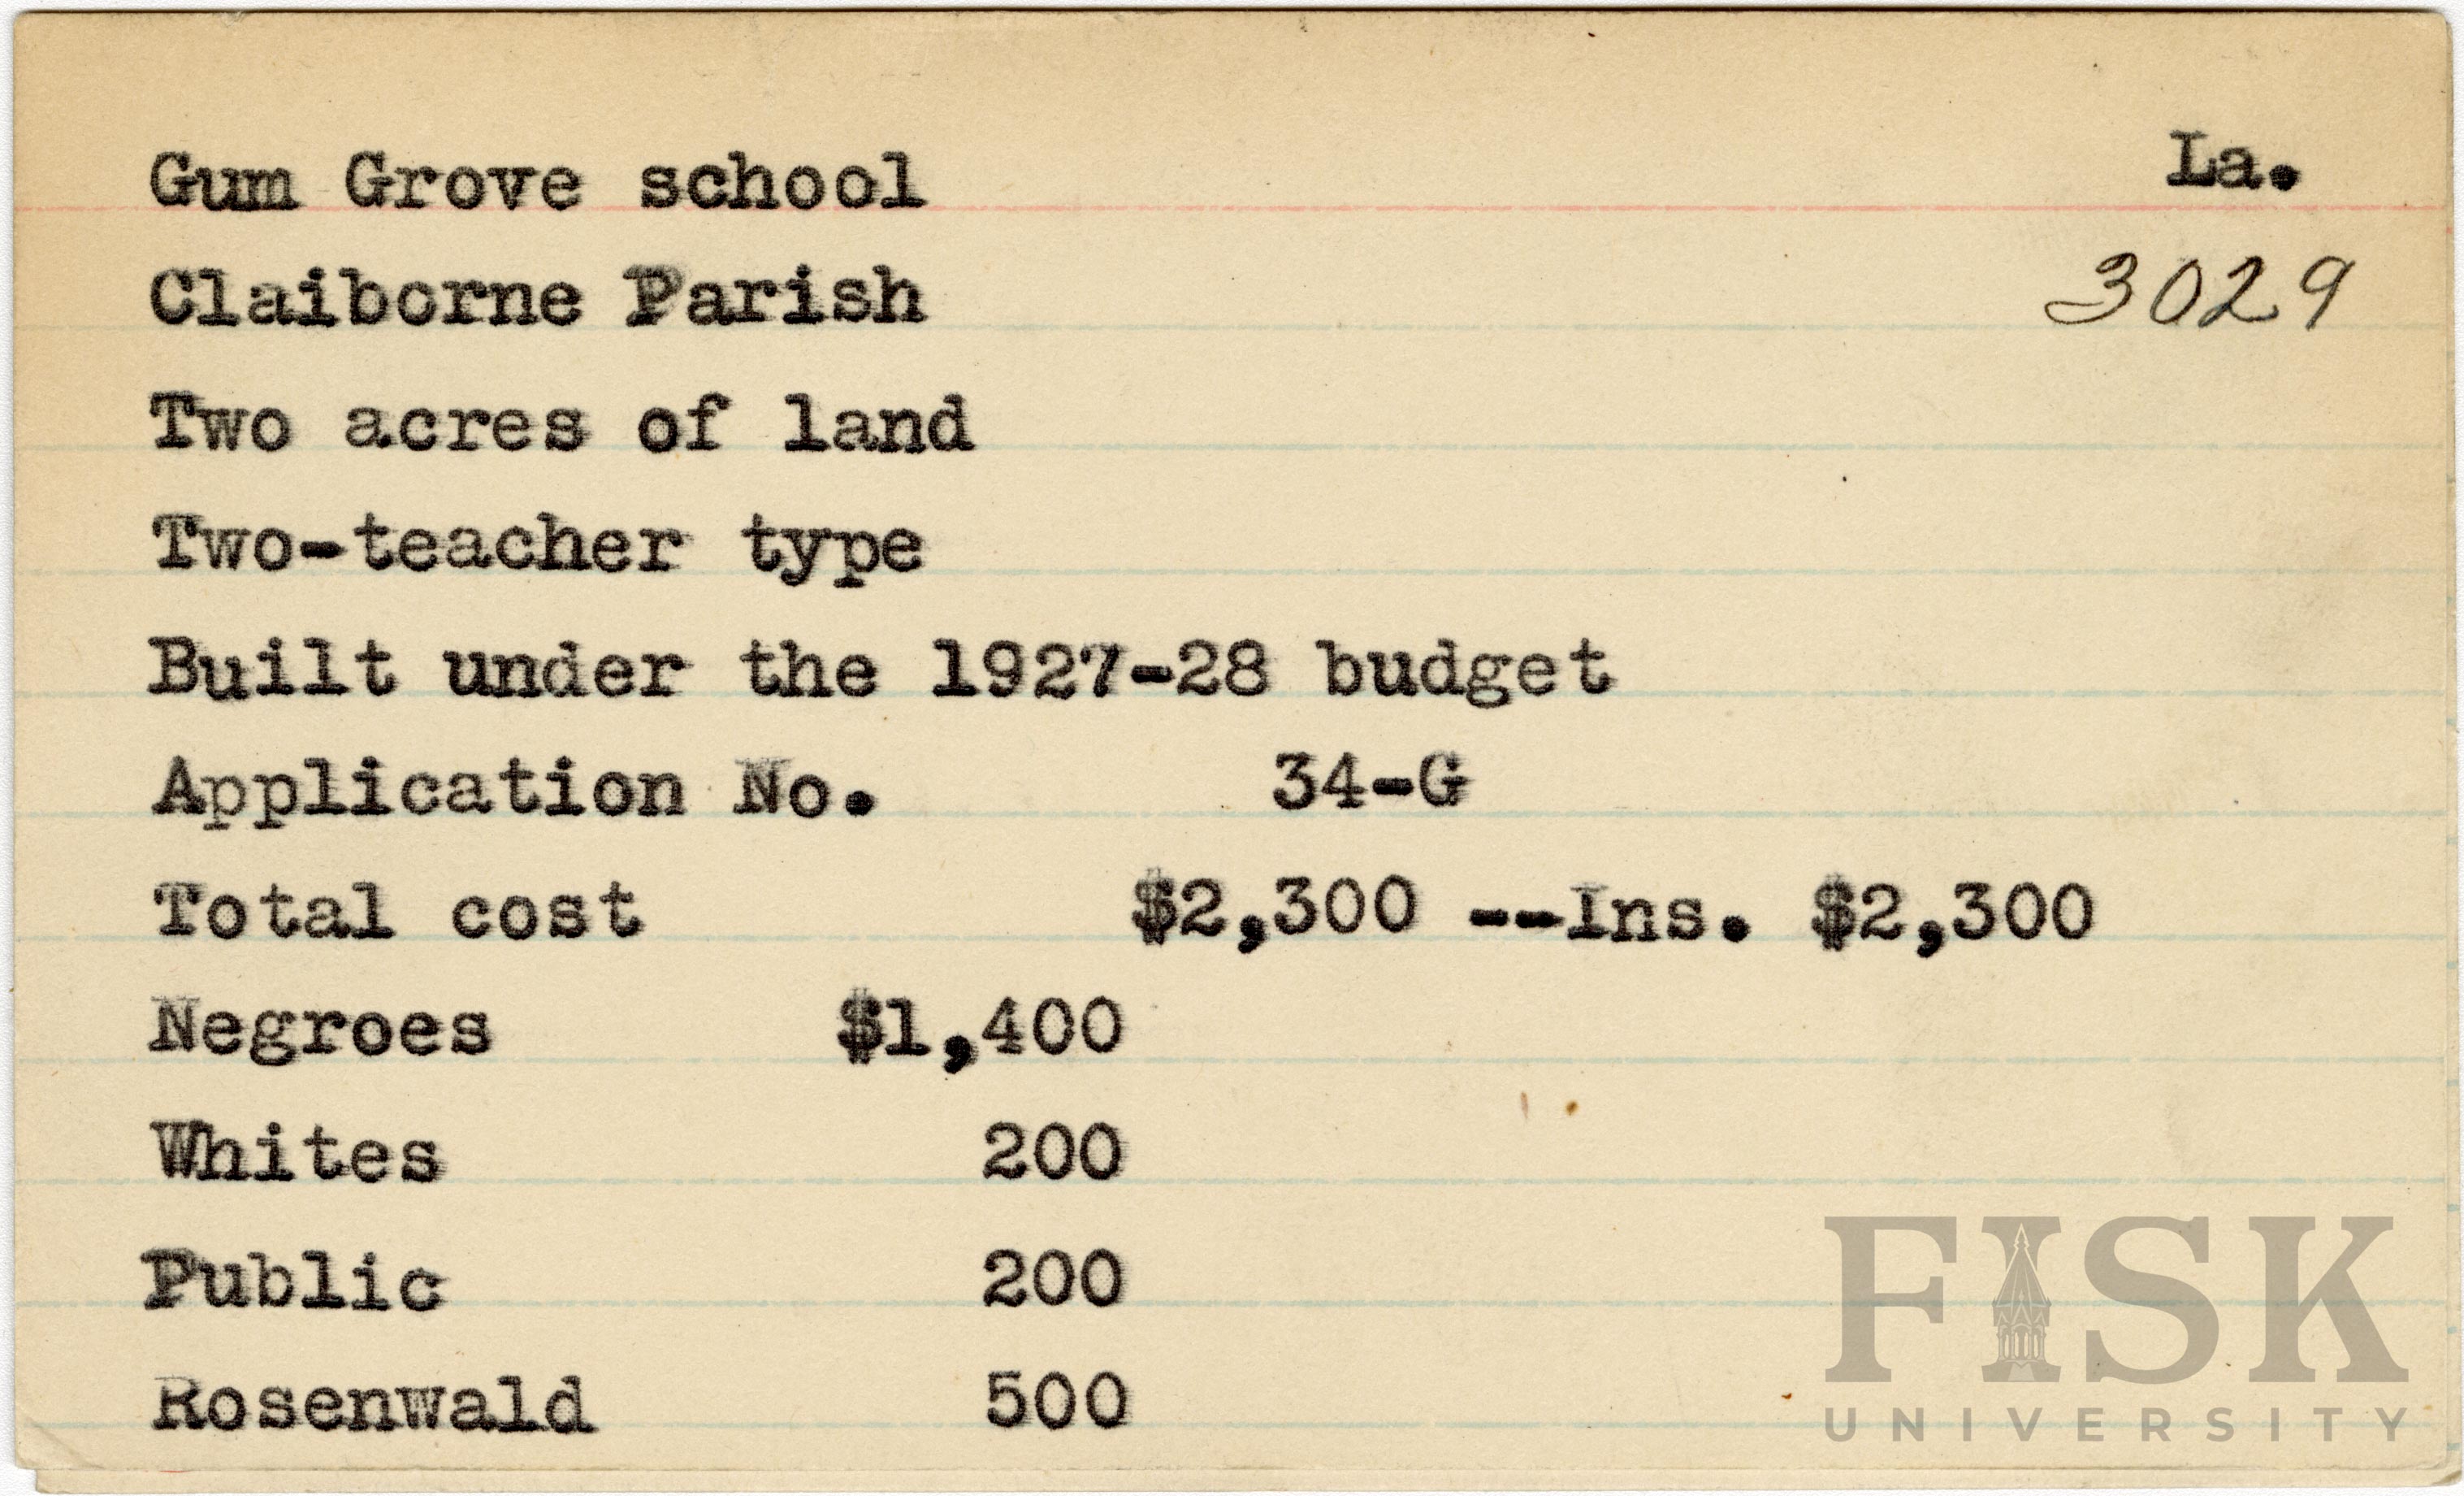 Gum Grove school La.
Claiborne Parish 3029
Two acres of land
Two-teacher type
Built under the 1927-28 budget
Application No. 34-G
Total cost $2,300 --Ins. $2,300
Negroes $1,400
Whites 200
Public 200
Rosenwald 500
FISK
UNIVERSITY